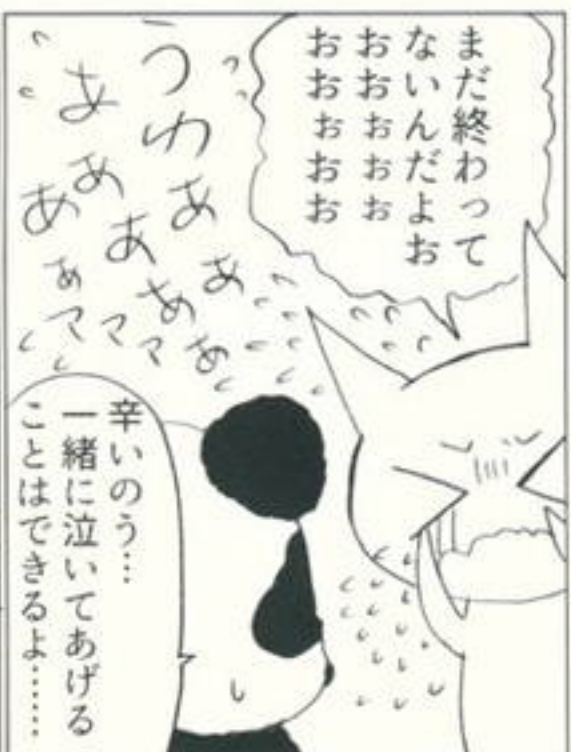 まだ終わって
ないんだよお
おおぉぉぉ
おおぉおお
うゆああ
ああああぁ
あぁママママ
辛いのう…
一緒に泣いてあげる
ことはできるよ……